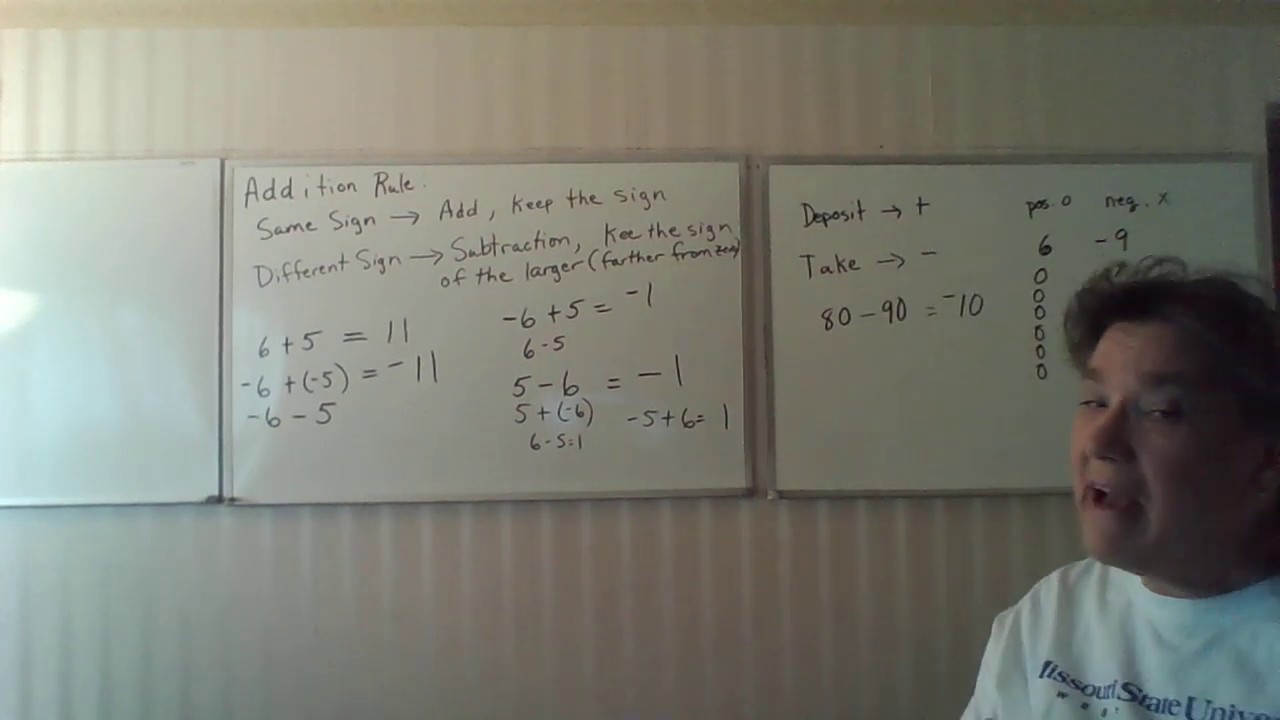 Addition Rule.
Same Sign → Add, Keep the sign
Different Sign → Subtraction, Kee the sign
of the larger (farther from zero)
6 + 5 = 11
-6 + (-5) = -11
-6 - 5
-6 + 5 = -1
6 - 5
5 - 6 = -1
5 + (-6)
6 - 5 = 1
-5 + 6 = 1
Deposit → +
Take → -
80 - 90 = -10
pos. o neg. x
6 -9
o
o
o
o
o
o
Missouri State